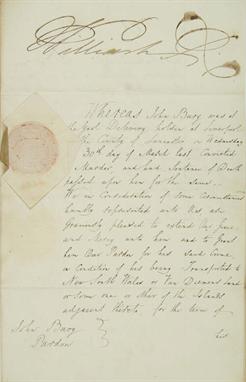 William R.
Whereas John Burg was at
the Goal Delivery holden at Liverpool
the County of Lancaster on Wednesday
30th day of March last Convicted
Murder and had Sentence of Death
passed upon him for the same.
We in Consideration of some Circumstances
humbly represented unto Us, are
Graciously pleased to extend Our Grace
and Mercy unto him and to Grant
him Our Pardon for his said Crime
on Condition of his being Transported to
New South Wales or Van Diemens Land
or some one or other of the Islands
adjacent thereto for the term of
his
John Burg
Pardon